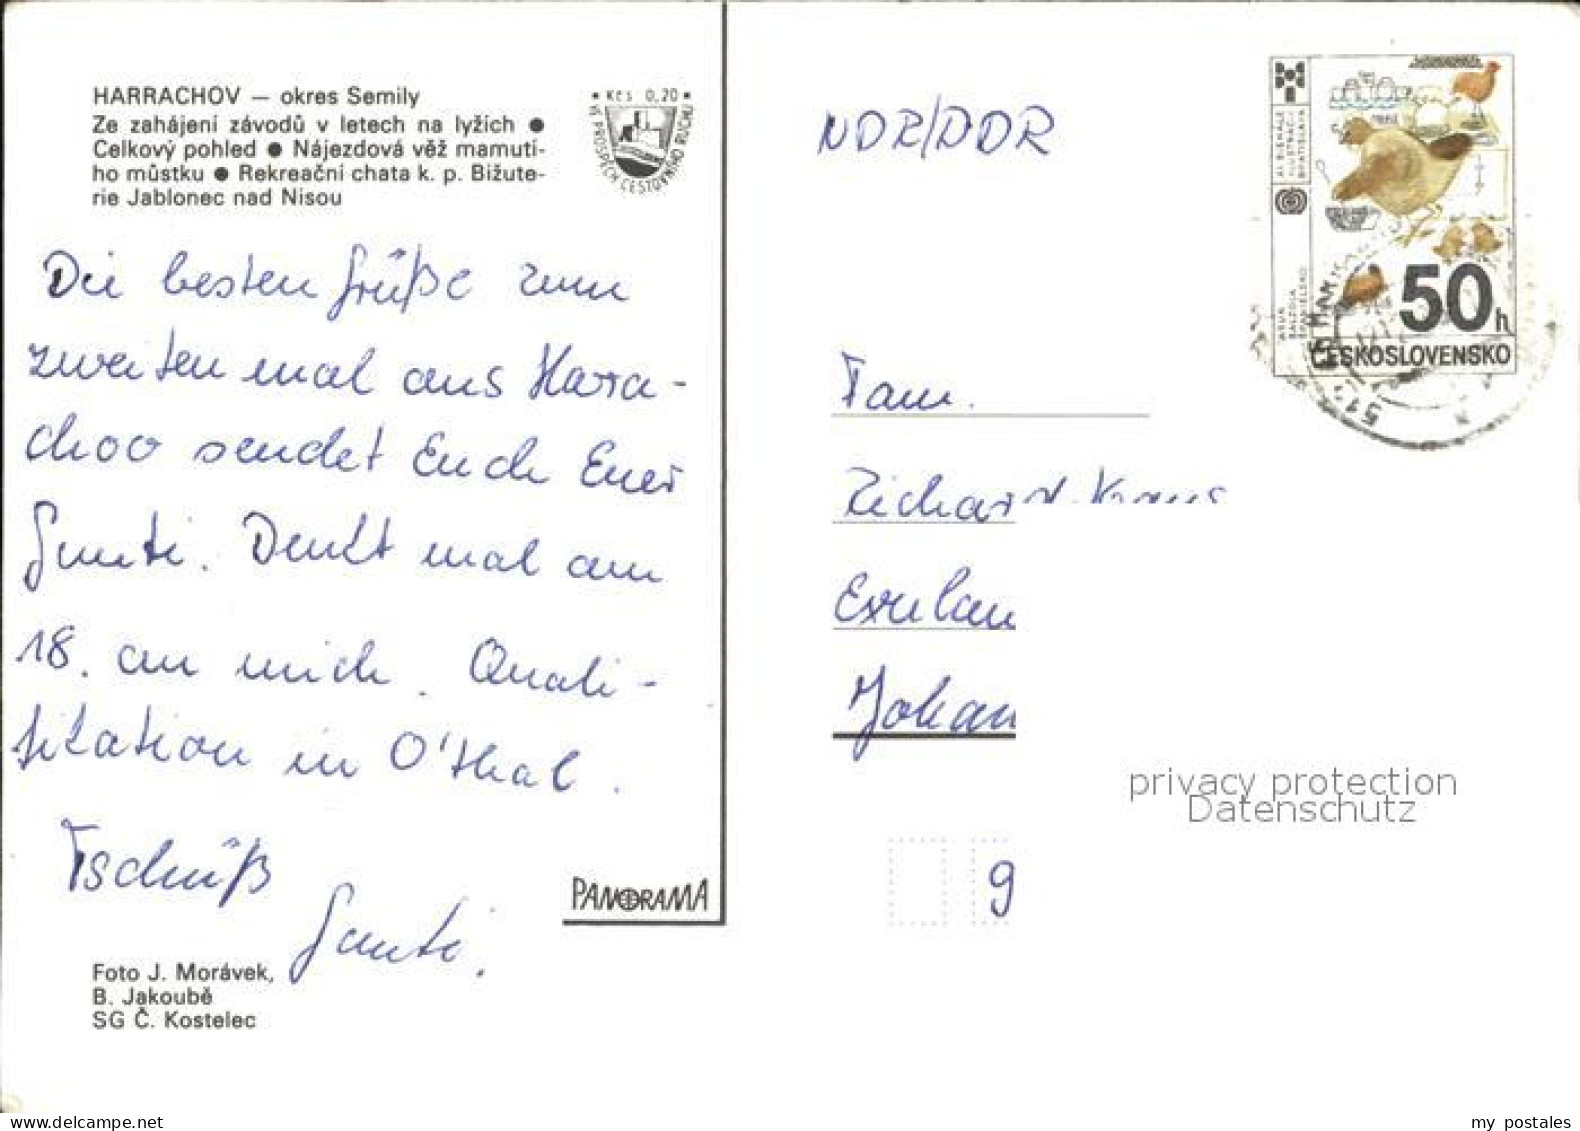 HARRACHOV — okres Semily
Ze zahájení závodů v letech na lyžích ●
Celkový pohled ● Nájezdová věž mamuti-
ho můstku ● Rekreační chata k. p. Bižute-
rie Jablonec nad Nisou
• Kčs 0,20 •
VE PROSPĚCH CESTOVNÍHO RUCHU
Die besten Grüße zum
zweiten mal aus Harra-
chov sendet Euch Euer
Gunti. Denkt mal am
18. an mich. Quali-
fikation in O'thal.
Tschüß
Gunti.
PANORAMA
Foto J. Morávek,
B. Jakoubě
SG Č. Kostelec
NDR/DDR
XI. BIENÁLE
ILUSTRÁCIÍ
BRATISLAVA
ŠPANIELSKO
50h
ČESKOSLOVENSKO
Fam.
Richard
Exulan
Johan
9
privacy protection
Datenschutz
www.delcampe.net
my postales